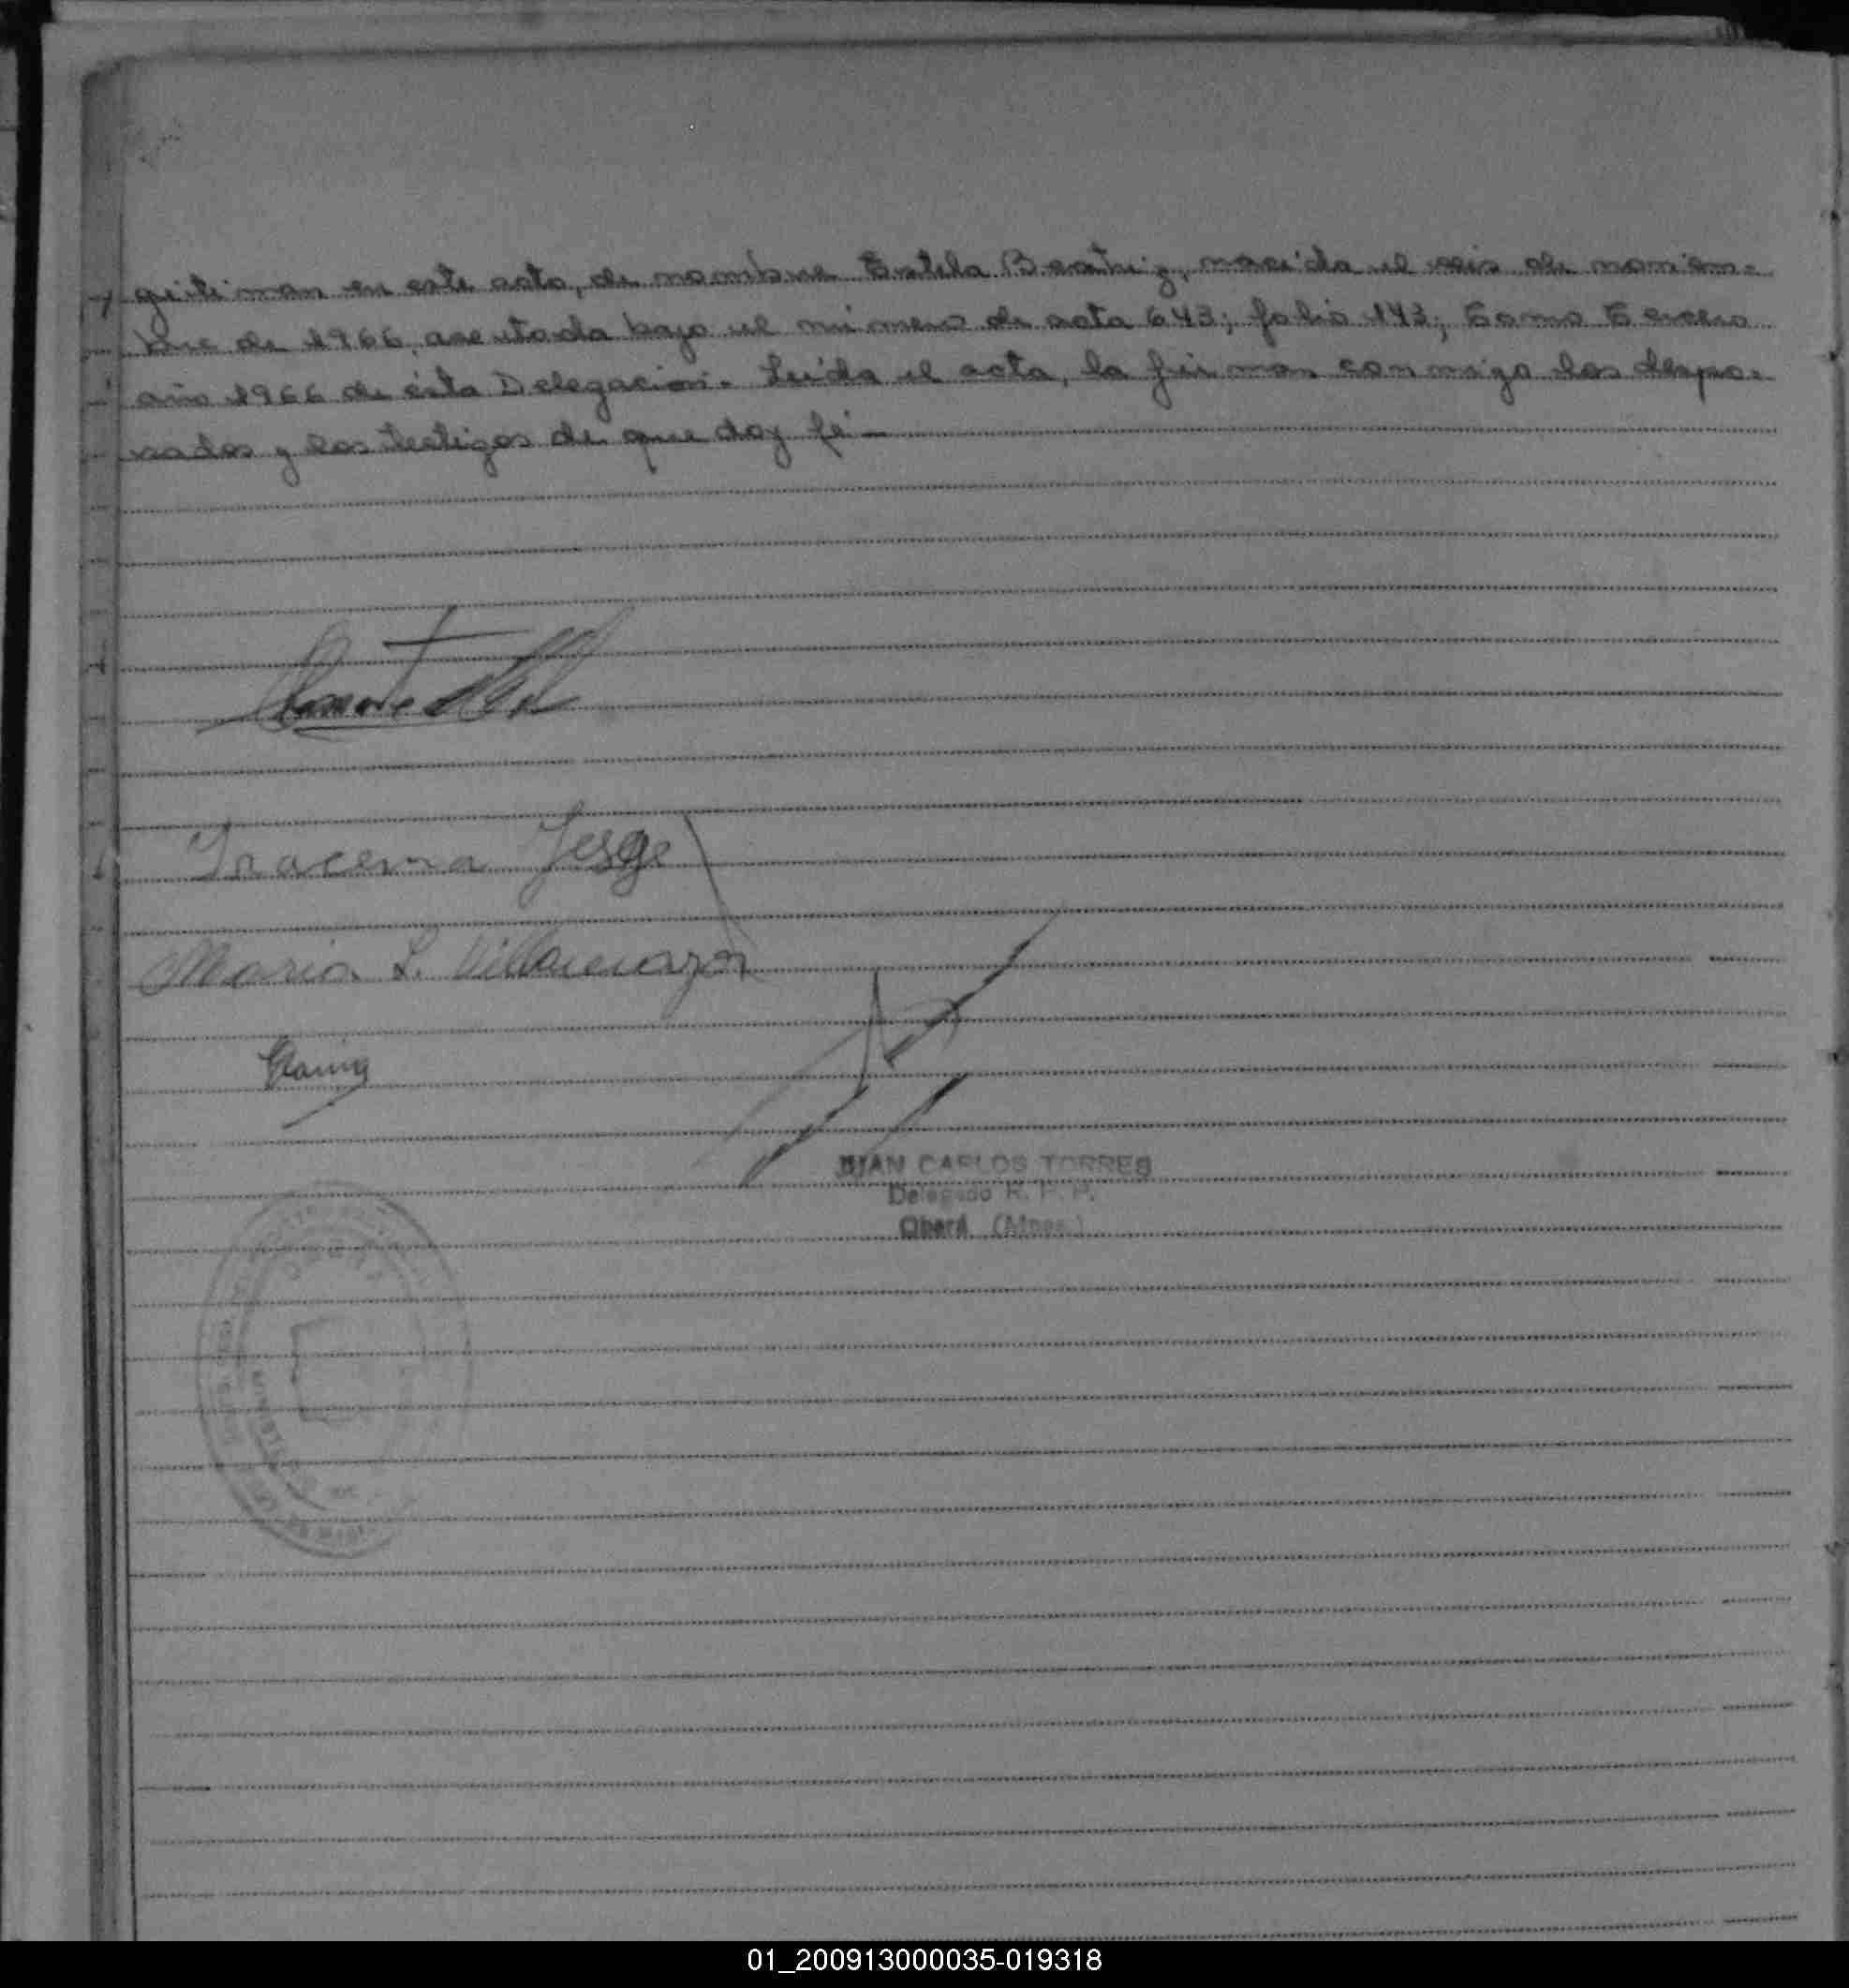 gitiman en este acto, de nombre Estela Beatriz, nacida el seis de noviem-
bre de 1966, asentada bajo el número de acta 643; folio 143; Tomo Tercero
año 1966 de ésta Delegación. Leída el acta, la firman conmigo los despo-
sados y los testigos de que doy fé
Iracema Jesge
Maria L.
JUAN CARLOS TORRES
Delegado R. P. P.
Oberá (Mnes.)
01_200913000035-019318